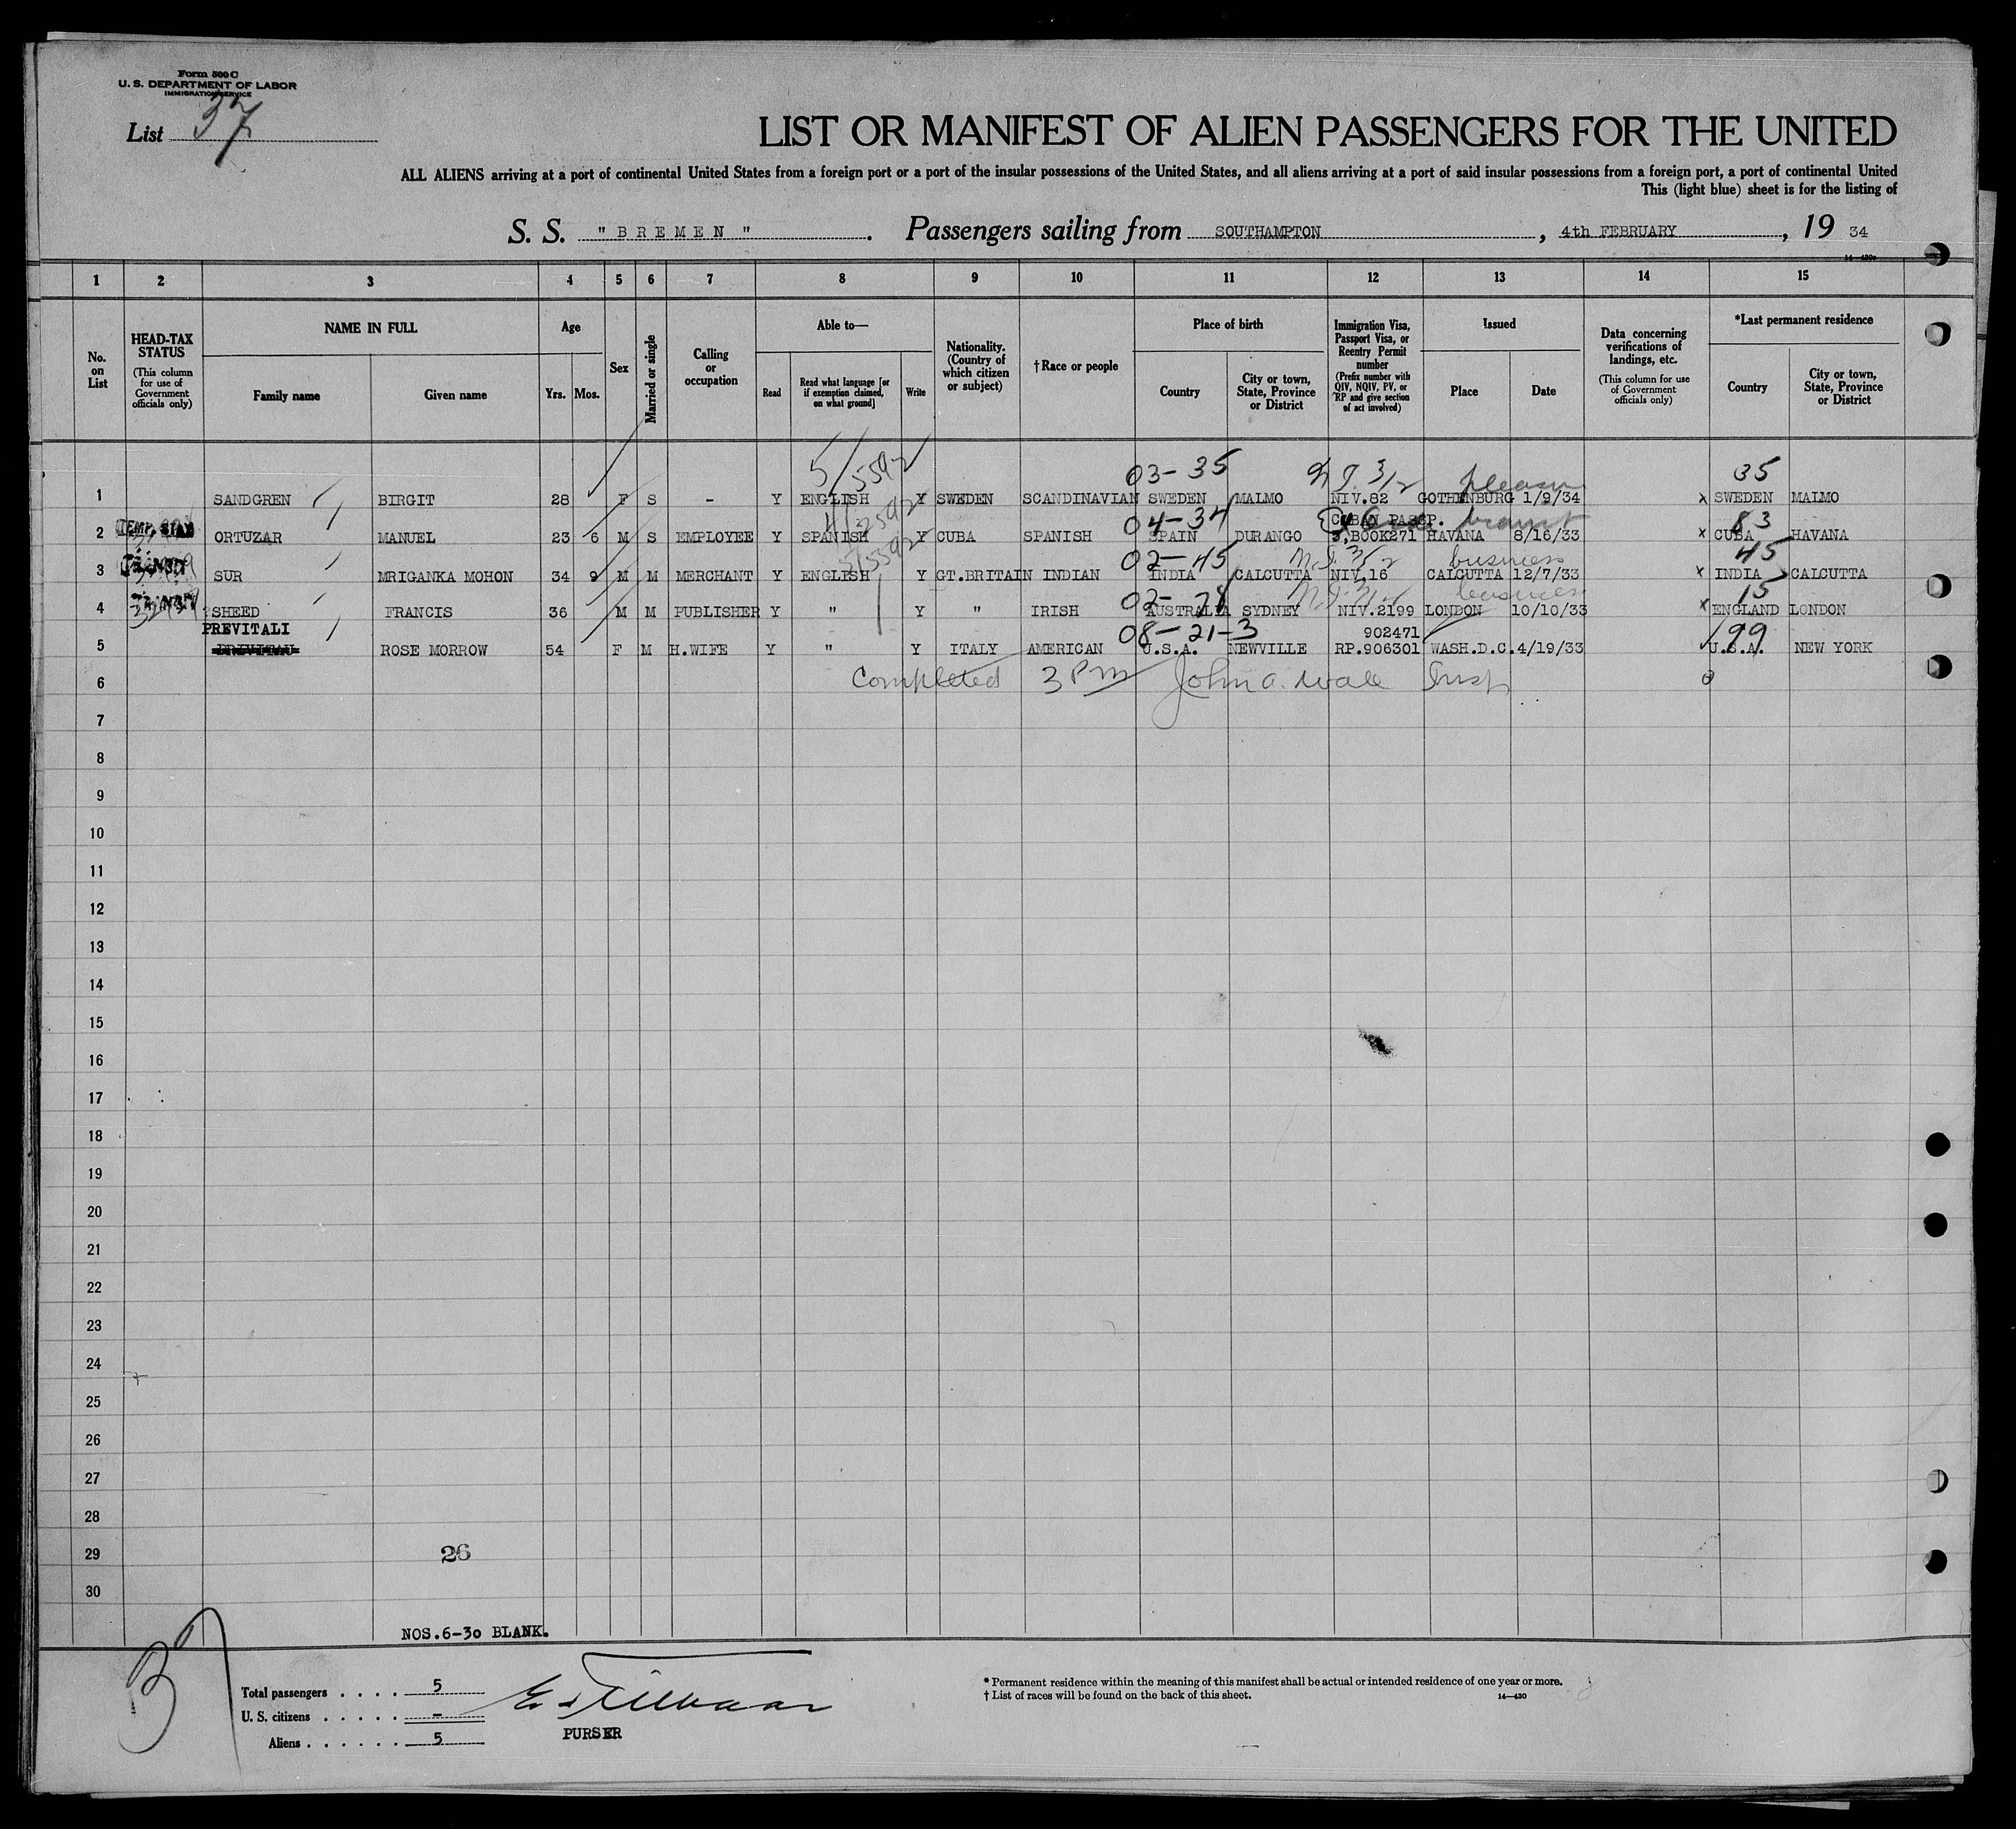 Form 500 C
U. S. DEPARTMENT OF LABOR
IMMIGRATION SERVICE
List 37
LIST OR MANIFEST OF ALIEN PASSENGERS FOR THE UNITED
ALL ALIENS arriving at a port of continental United States from a foreign port or a port of the insular possessions of the United States, and all aliens arriving at a port of said insular possessions from a foreign port, a port of continental United
This (light blue) sheet is for the listing of
S. S. "BREMEN". Passengers sailing from SOUTHAMPTON, 4th FEBRUARY, 19 34
14—430a
1 2 3 4 5 6 7 8 9 10 11 12 13 14 15
No. on List
HEAD-TAX STATUS (This column for use of Government officials only)
NAME IN FULL
Family name Given name
Age
Yrs. Mos.
Sex
Married or single
Calling or occupation
Able to—
Read Read what language [or if exemption claimed, on what ground] Write
Nationality. (Country of which citizen or subject)
† Race or people
Place of birth
Country City or town, State, Province or District
Immigration Visa, Passport Visa, or Reentry Permit number (Prefix number with QIV, NQIV, PV, or RP and give section of act involved)
Issued
Place Date
Data concerning verifications of landings, etc. (This column for use of Government officials only)
*Last permanent residence
Country City or town, State, Province or District
5/5592 03-35 3/2 pleasure 35
1 SANDGREN BIRGIT 28 F S - Y ENGLISH Y SWEDEN SCANDINAVIAN SWEDEN MALMO NIV.82 GOTHENBURG 1/9/34 x SWEDEN MALMO
TEMP. 04-34 CUBAN PASSP. transit 83
2 ORTUZAR MANUEL 23 6 M S EMPLOYEE Y SPANISH Y CUBA SPANISH SPAIN DURANGO 3,BOOK271 HAVANA 8/16/33 x CUBA HAVANA
5/5592 02-45 3/2 business 45
3 SUR MRIGANKA MOHON 34 9 M M MERCHANT Y ENGLISH Y GT.BRITAIN INDIAN INDIA CALCUTTA NIV.16 CALCUTTA 12/7/33 x INDIA CALCUTTA
02-78 business 15
4 SHEED FRANCIS 36 M M PUBLISHER Y " Y " IRISH AUSTRALIA SYDNEY NIV.2199 LONDON 10/10/33 x ENGLAND LONDON
PREVITALI 08-21-3 902471 99
5 ROSE MORROW 54 F M H.WIFE Y " Y ITALY AMERICAN U.S.A. NEWVILLE RP.906301 WASH.D.C. 4/19/33 U.S.A. NEW YORK
6 Completed 3 Pm John A. Wale Insp
7
8
9
10
11
12
13
14
15
16
17
18
19
20
21
22
23
24
25
26
27
28
29 26
30
NOS.6-30 BLANK.
37
Total passengers . . . . 5
U. S. citizens . . . . . -
Aliens . . . . . . 5
PURSER
* Permanent residence within the meaning of this manifest shall be actual or intended residence of one year or more.
† List of races will be found on the back of this sheet. 14—430